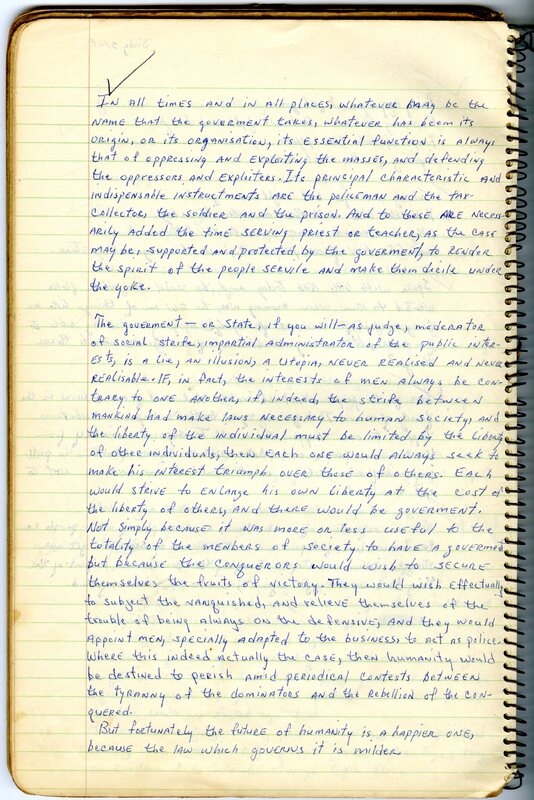 IN all times and in all places, whatever may be the
name that the goverment takes, whatever has been its
origin, or its organisation, its essential function is always
that of oppressing and exploiting the masses, and defending
the oppressors and exploiters. Its principal characteristic and
indispensable instructments are the policeman and the tax-
collector, the soldier and the prison. And to these are necess-
arily added the time serving priest or teacher, as the case
may be, supported and protected by the goverment, to render
the spirit of the people servile and make them docile under
the yoke.
The goverment — or State, if you will — as judge, moderator
of social strife, impartial administrator of the public inter-
ests, is a lie, an illusion, a utopia, never realised and never
realisable. If, in fact, the interests of men always be con-
trary to one another, if, indeed, the strife between
mankind had make laws necessary to human society, and
the liberty of the individual must be limited by the liberty
of other individuals, then each one would always seek to
make his interest triumph over those of others. Each
would strive to enlarge his own liberty at the cost of
the liberty of others, and there would be goverment.
Not simply because it was more or less useful to the
totality of the menbers of society to have a goverment,
but because the conquerors would wish to secure
themselves the fruits of victory. They would wish effectually
to subject the vanquished, and relieve themselves of the
trouble of being always on the defensive, and they would
appoint men, specially adapted to the business, to act as police.
Where this indeed actually the case, then humanity would
be destined to perish amid periodical contests between
the tyranny of the dominators and the rebellion of the con-
quered.
But fortunately the future of humanity is a happier one,
because the law which governs it is milder.